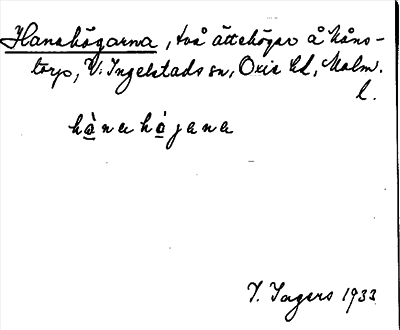 Hanehögarna, två ättehögar å Håns-
torp, V. Ingelstads sn, Oxie hd, Malm.
l.
hànahójana
I. Ingers 1933